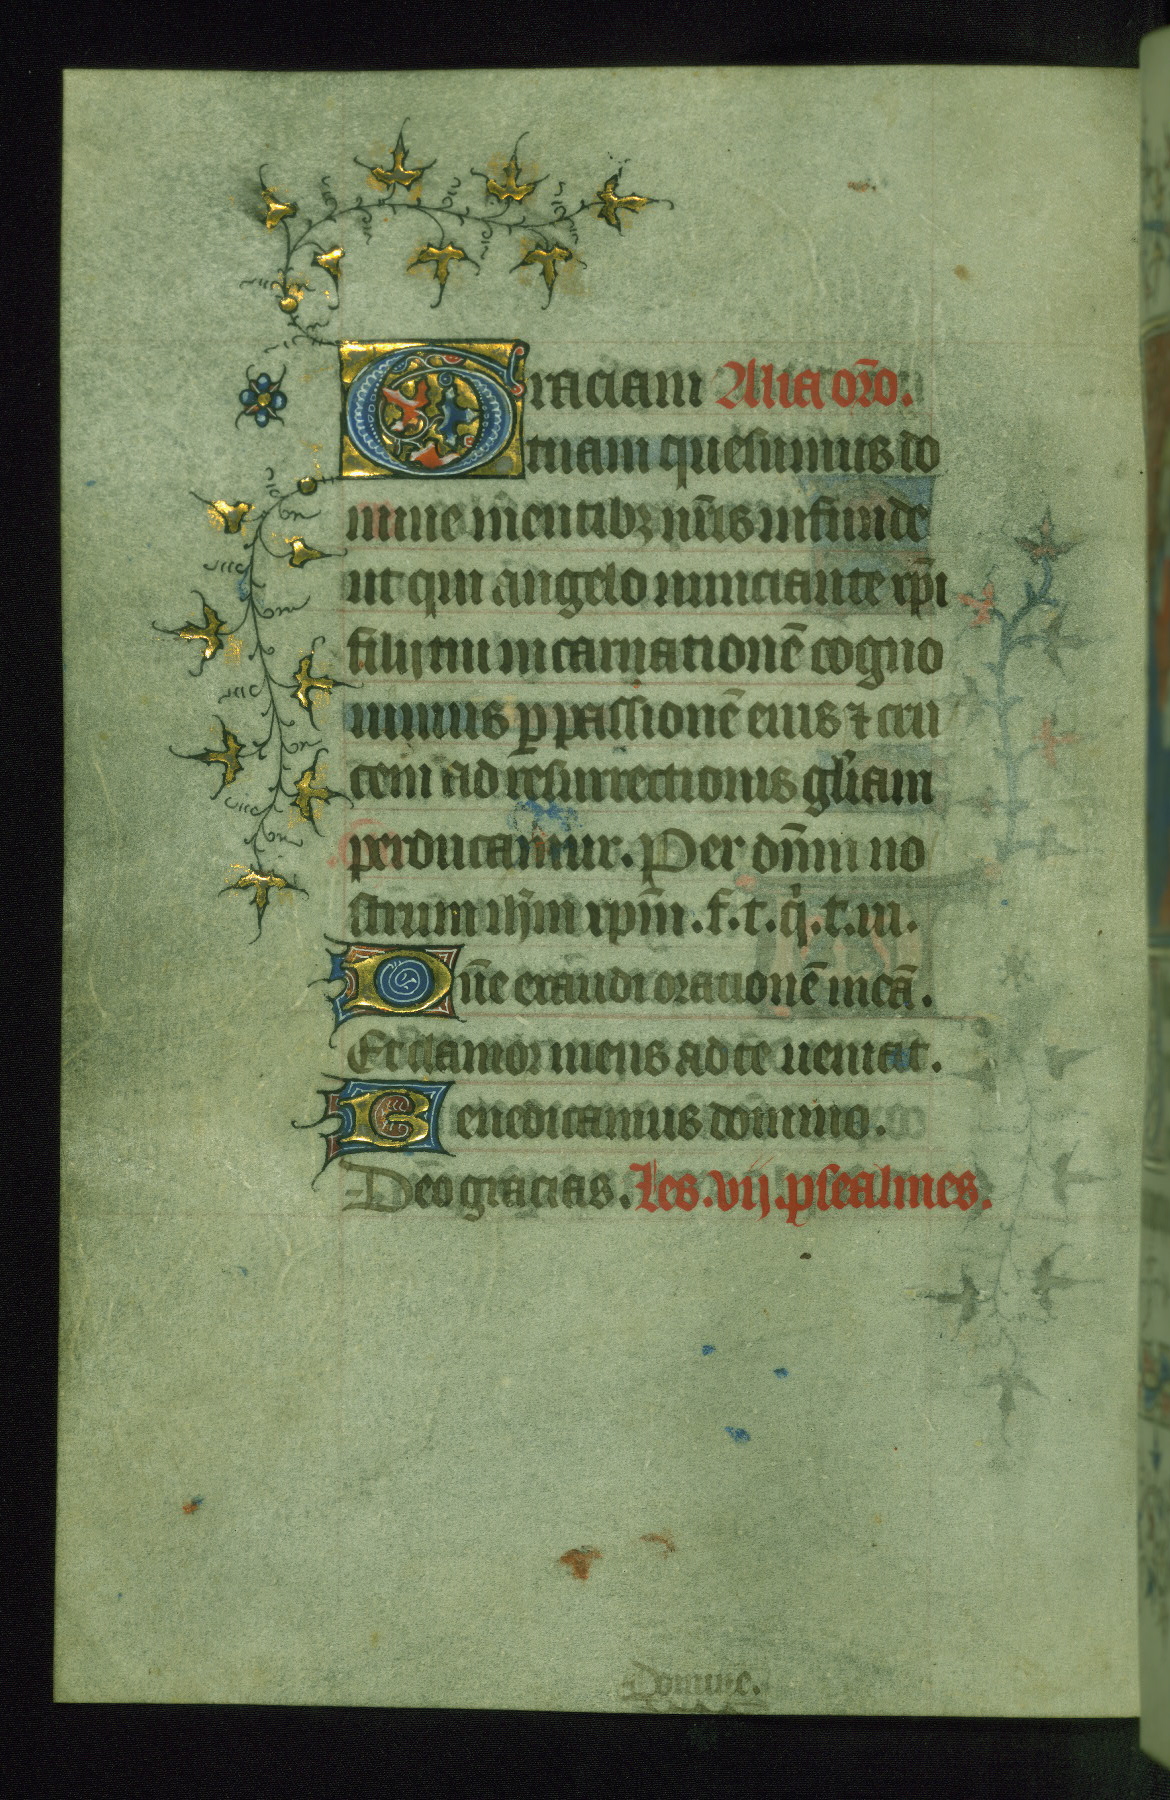 Graciam Alia oro̅.
tuam quesumus do
mine mentibꝫ nr̅is infunde
ut qui angelo nunciante xp̅i
filij tui incarnatione̅ cogno
uimus ꝑ passione̅ eius ⁊ cru
cem ad resurrectionis gl̅iam
perducamur. Per dn̅m no
strum ih̅m xp̅m. f. t. q̇. t. ui.
Dn̅e exaudi oratione̅ mea̅.
Et clamor meus ad te ueniat.
Benedicamus domino.
Deo gracias. Les .vij. psealmes.
Domine.